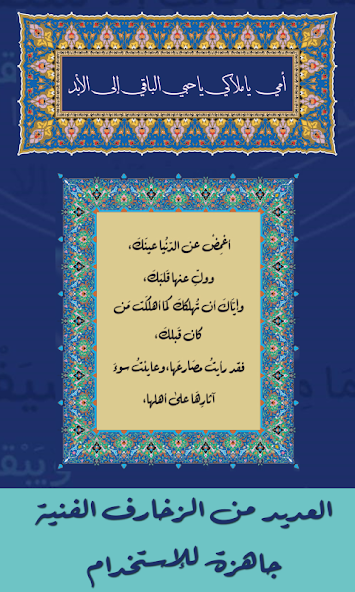 أمي يا ملاكي يا حبي الباقي إلى الأبد
أغمِضْ عن الدّنْيا عينَكَ،
وولِّ عنها قلبَكَ،
وإيّاكَ أن تُهلككَ كما أهلكَت مَن
كان قبلكَ،
فقد رأيتُ مصارعَها، وعاينتُ سوءَ
آثارِهَا على أهلها،
العديد من الزخارف الفنية
جاهزة للإستخدام